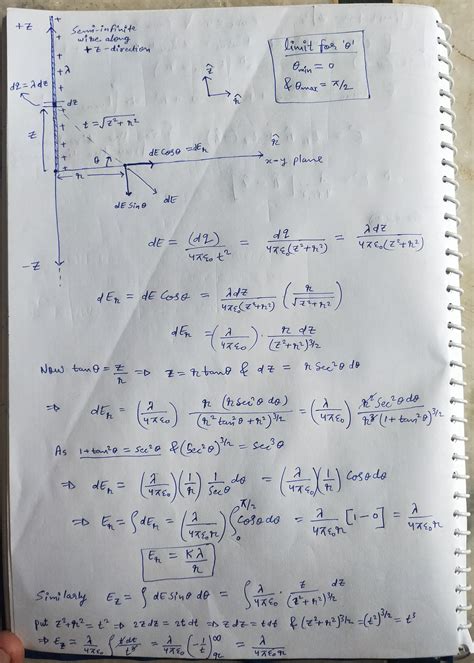 +Z
Semi-infinite
wire along
+Z-direction
limit for 'θ'
θmin = 0
& θmax = π/2
λ
dq = λdz
dz
ẑ
r̂
Z
t = √(z²+r²)
θ
dE Cosθ = dEr
r̂
x-y plane
r
dE Sinθ
dE
-Z
dE = (dq)/(4πε₀ t²) = dq/(4πε₀(z²+r²)) = λdz/(4πε₀(z²+r²))
dEr = dE Cosθ = λdz/(4πε₀(z²+r²)) (r/√(z²+r²))
dEr = (λ/4πε₀) · r dz/(z²+r²)^3/2
Now tanθ = z/r ⇒ z = r tanθ & dz = r Sec²θ dθ
⇒ dEr = (λ/4πε₀) r (r Sec²θ dθ)/(r² tan²θ + r²)^3/2 = (λ/4πε₀) r² Sec²θ dθ/(r³ (1+tan²θ)^3/2)
As 1+tan²θ = sec²θ & (Sec²θ)^3/2 = sec³θ
⇒ dEr = (λ/4πε₀)(1/r) 1/Secθ dθ = (λ/4πε₀)(1/r) Cosθ dθ
⇒ Er = ∫dEr = (λ/4πε₀r) ∫₀^π/2 Cosθ dθ = λ/4πε₀r [1-0] = λ/4πε₀r
Er = Kλ/r
Similarly Ez = ∫ dE Sinθ dθ = ∫ λ/4πε₀ · z dz/(z²+r²)^3/2
put z²+r² = t² ⇒ 2z dz = 2t dt ⇒ z dz = t dt & (z²+r²)^3/2 = (t²)^3/2 = t³
⇒ Ez = λ/4πε₀ ∫ t dt/t³ = λ/4πε₀ (-1/t)_r^∞ = λ/4πε₀r